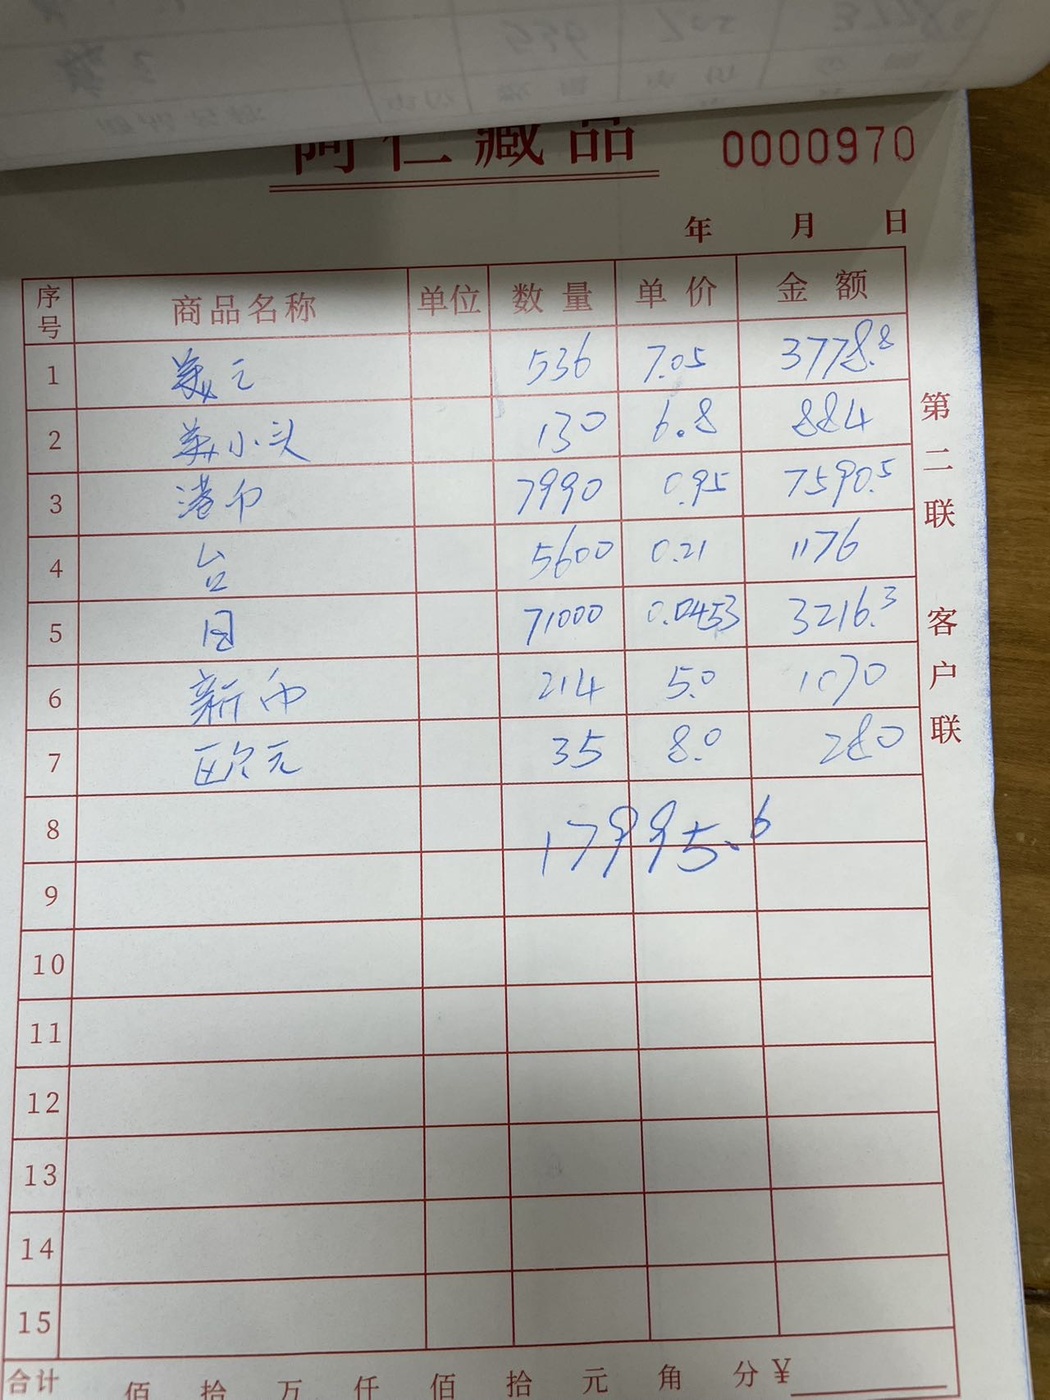 阿仁藏品 0000970
年 月 日
序号 商品名称 单位 数量 单价 金额
1 美元 536 7.05 3778.8
2 美小头 130 6.8 884
3 港币 7990 0.95 7590.5
4 台 5600 0.21 1176
5 日 71000 0.0453 3216.3
6 新币 214 5.0 1070
7 欧元 35 8.0 280
8 17995.6
9
10
11
12
13
14
15
合计 佰 拾 万 仟 佰 拾 元 角 分 ¥
第二联 客户联